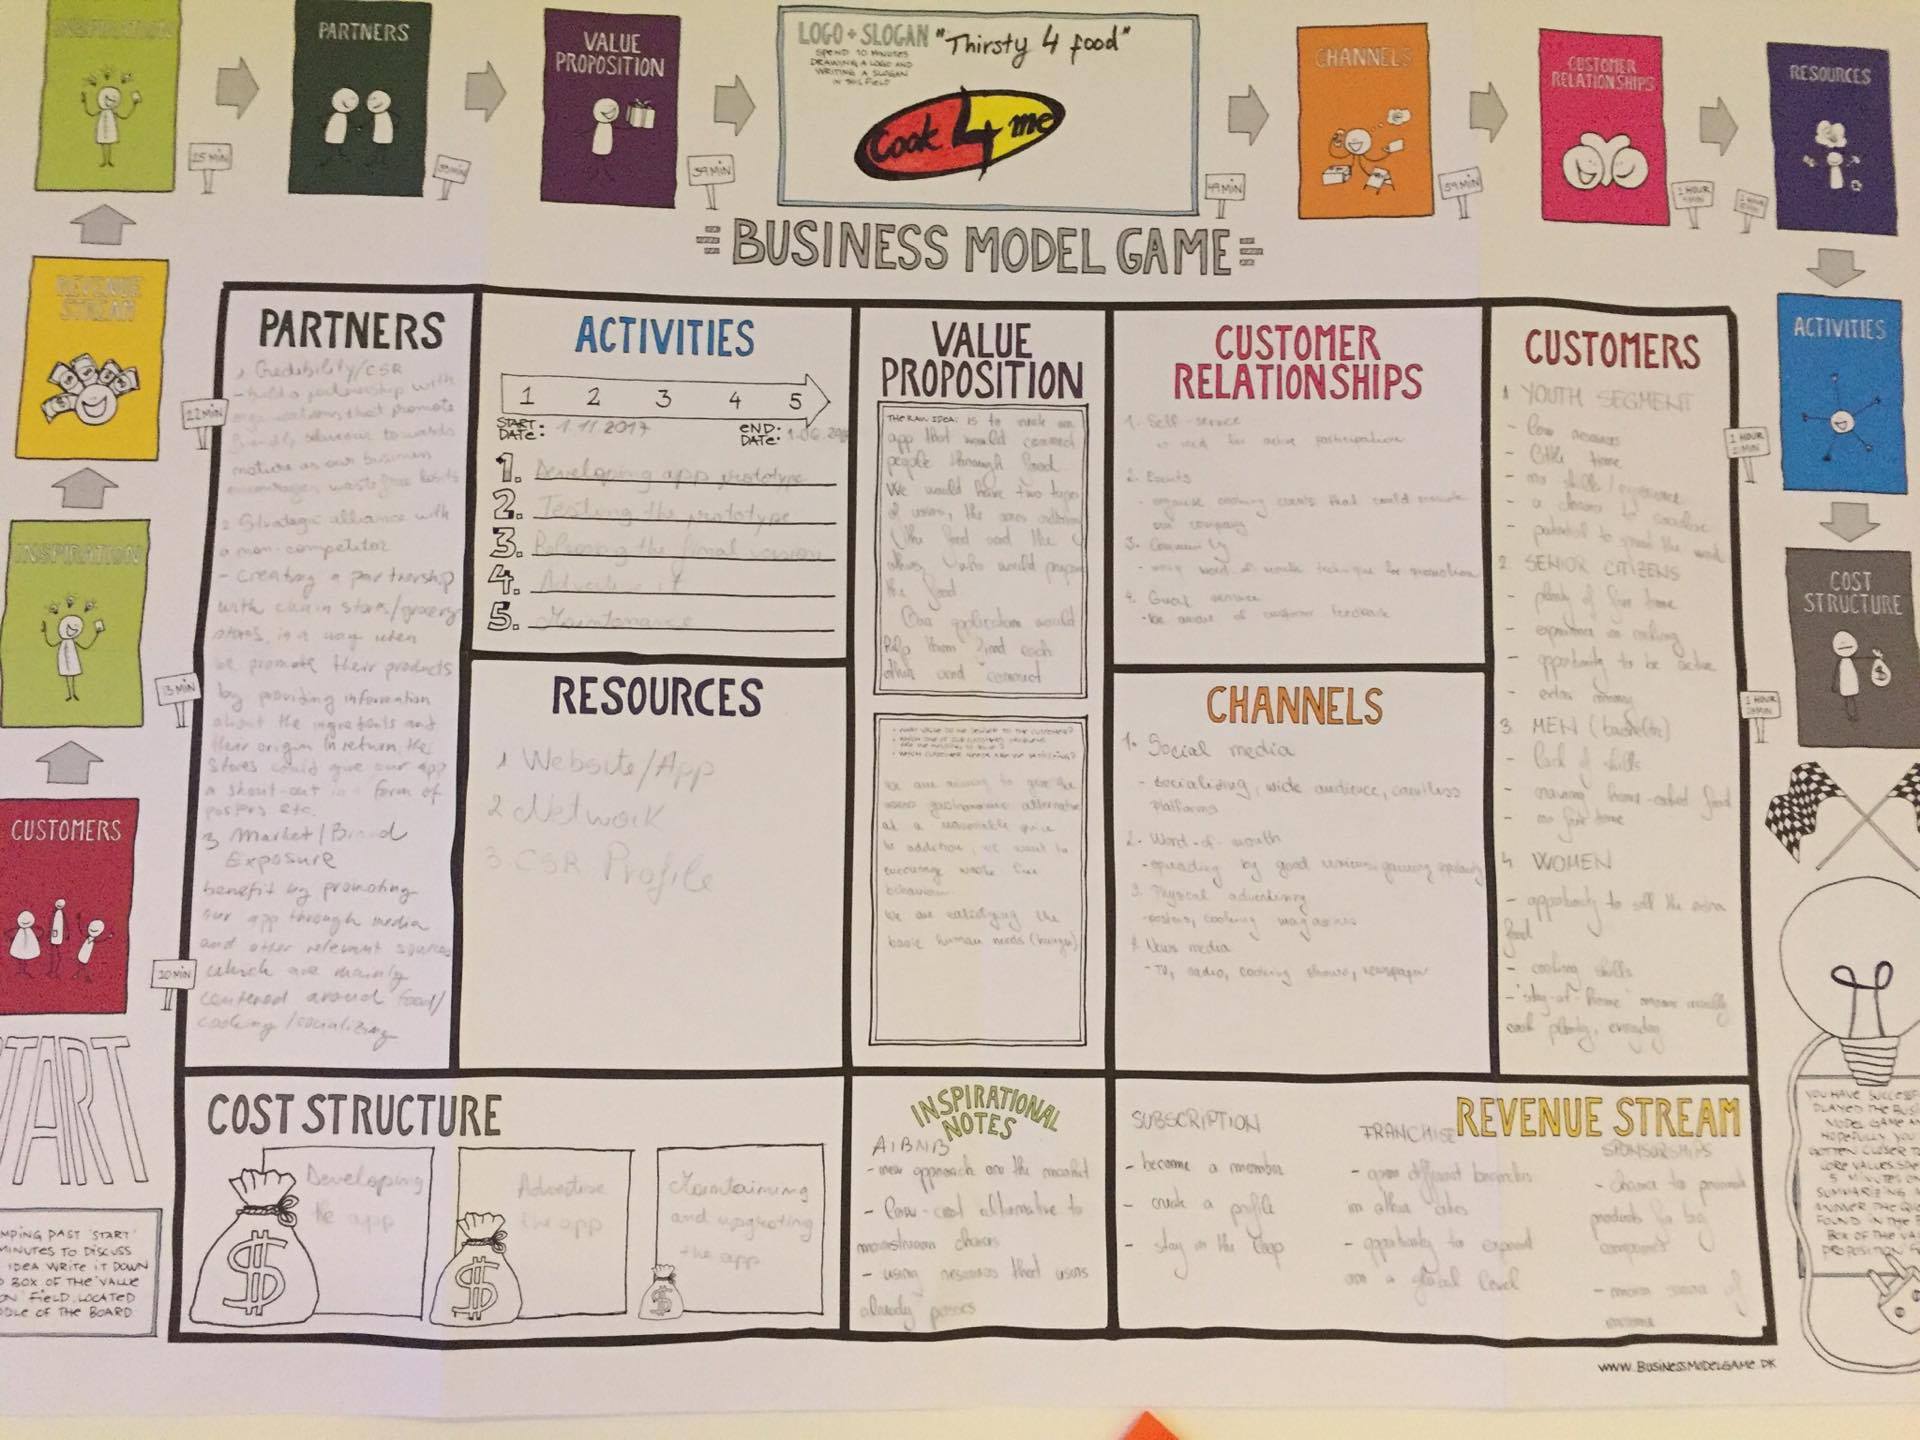 INSPIRATION
PARTNERS
VALUE
PROPOSITION
LOGO + SLOGAN
SPEND 10 MINUTES
DRAWING A LOGO AND
WRITING A SLOGAN
IN THIS FIELD
"Thirsty 4 food"
Cook 4 me
CHANNELS
CUSTOMER
RELATIONSHIPS
RESOURCES
25 MIN
39 MIN
49 MIN
59 MIN
1 HOUR
BUSINESS MODEL GAME
REVENUE
STREAM
22 MIN
INSPIRATION
13 MIN
CUSTOMERS
10 MIN
START
MPING PAST 'START'
MINUTES TO DISCUSS
IDEA WRITE IT DOWN
BOX OF THE VALUE
ON FIELD, LOCATED
DDLE OF THE BOARD
ACTIVITIES
1 HOUR
COST
STRUCTURE
1 HOUR
PARTNERS
1 Credibility/CSR
- build a partnership with
organizations that promote
friendly behaviour towards
nature as our business
encourages waste free habits
2 Strategic alliance with
a non-competitor
- creating a partnership
with chain stores/grocery
stores, in a way when
we promote their products
by providing information
about the ingredients and
their origin. In return, the
stores could give our app
a shout-out in form of
posters etc.
3 Market/Brand
Exposure
benefit by promoting
our app through media
and other relevant sources
which are mainly
centered around food/
cooking/socializing
ACTIVITIES
1 2 3 4 5
START DATE: 1.11.2017
END DATE:
1. Developing app prototype
2. Testing the prototype
3. Releasing the final version
4. Advertise it
5. Maintenance
RESOURCES
1 Website/App
2 Network
3 CSR Profile
VALUE
PROPOSITION
THE RAW IDEA: is to make an
app that would connect
people through food.
We would have two types
of users, the ones ordering
the food and the
others who would prepare
the food
Our application would
help them find each
other and connect
We are aiming to give the
users gastronomic alternative
at a reasonable price
In addition, we want to
encourage waste free
behaviour.
We are satisfying the
basic human needs (hunger)
CUSTOMER
RELATIONSHIPS
1. Self-service
active participation
2. Events
- organise cooking events that could promote
our company
3. Community
- using word of mouth technique for promotion
4. Great service
- be aware of customer feedback
CHANNELS
1. Social media
- socializing, wide audience, countless
platforms
2. Word-of-mouth
- spreading by good reviews, gaining
3. Physical advertising
- posters, cooking magazines
4. News media
- TV, radio, cooking shows, newspaper
CUSTOMERS
1 YOUTH SEGMENT
- low resources
- little time
- no skills/experience
- a chance to socialise
- potential to spread the word
2. SENIOR CITIZENS
- plenty of free time
- experience in cooking
- opportunity to be active
- extra money
3. MEN (bachelor)
- lack of skills
- craving home-cooked food
- no free time
4. WOMEN
- opportunity to sell the extra
food
- cooking skills
- "stay-at-home" moms usually
cook plenty, everyday
COST STRUCTURE
Developing
the app
Advertise
the app
Maintaining
and upgrading
the app
INSPIRATIONAL
NOTES
AIBNB
- new approach on the market
- low-cost alternative to
mainstream chains
- using resources that users
already posses
REVENUE STREAM
SUBSCRIPTION
- become a member
- create a profile
- stay in the loop
FRANCHISE
- open different branches
in other cities
- opportunity to expand
on a global level
SPONSORSHIPS
- chance to promote
products for big
companies
- main source of
income
WWW.BUSINESSMODELGAME.DK